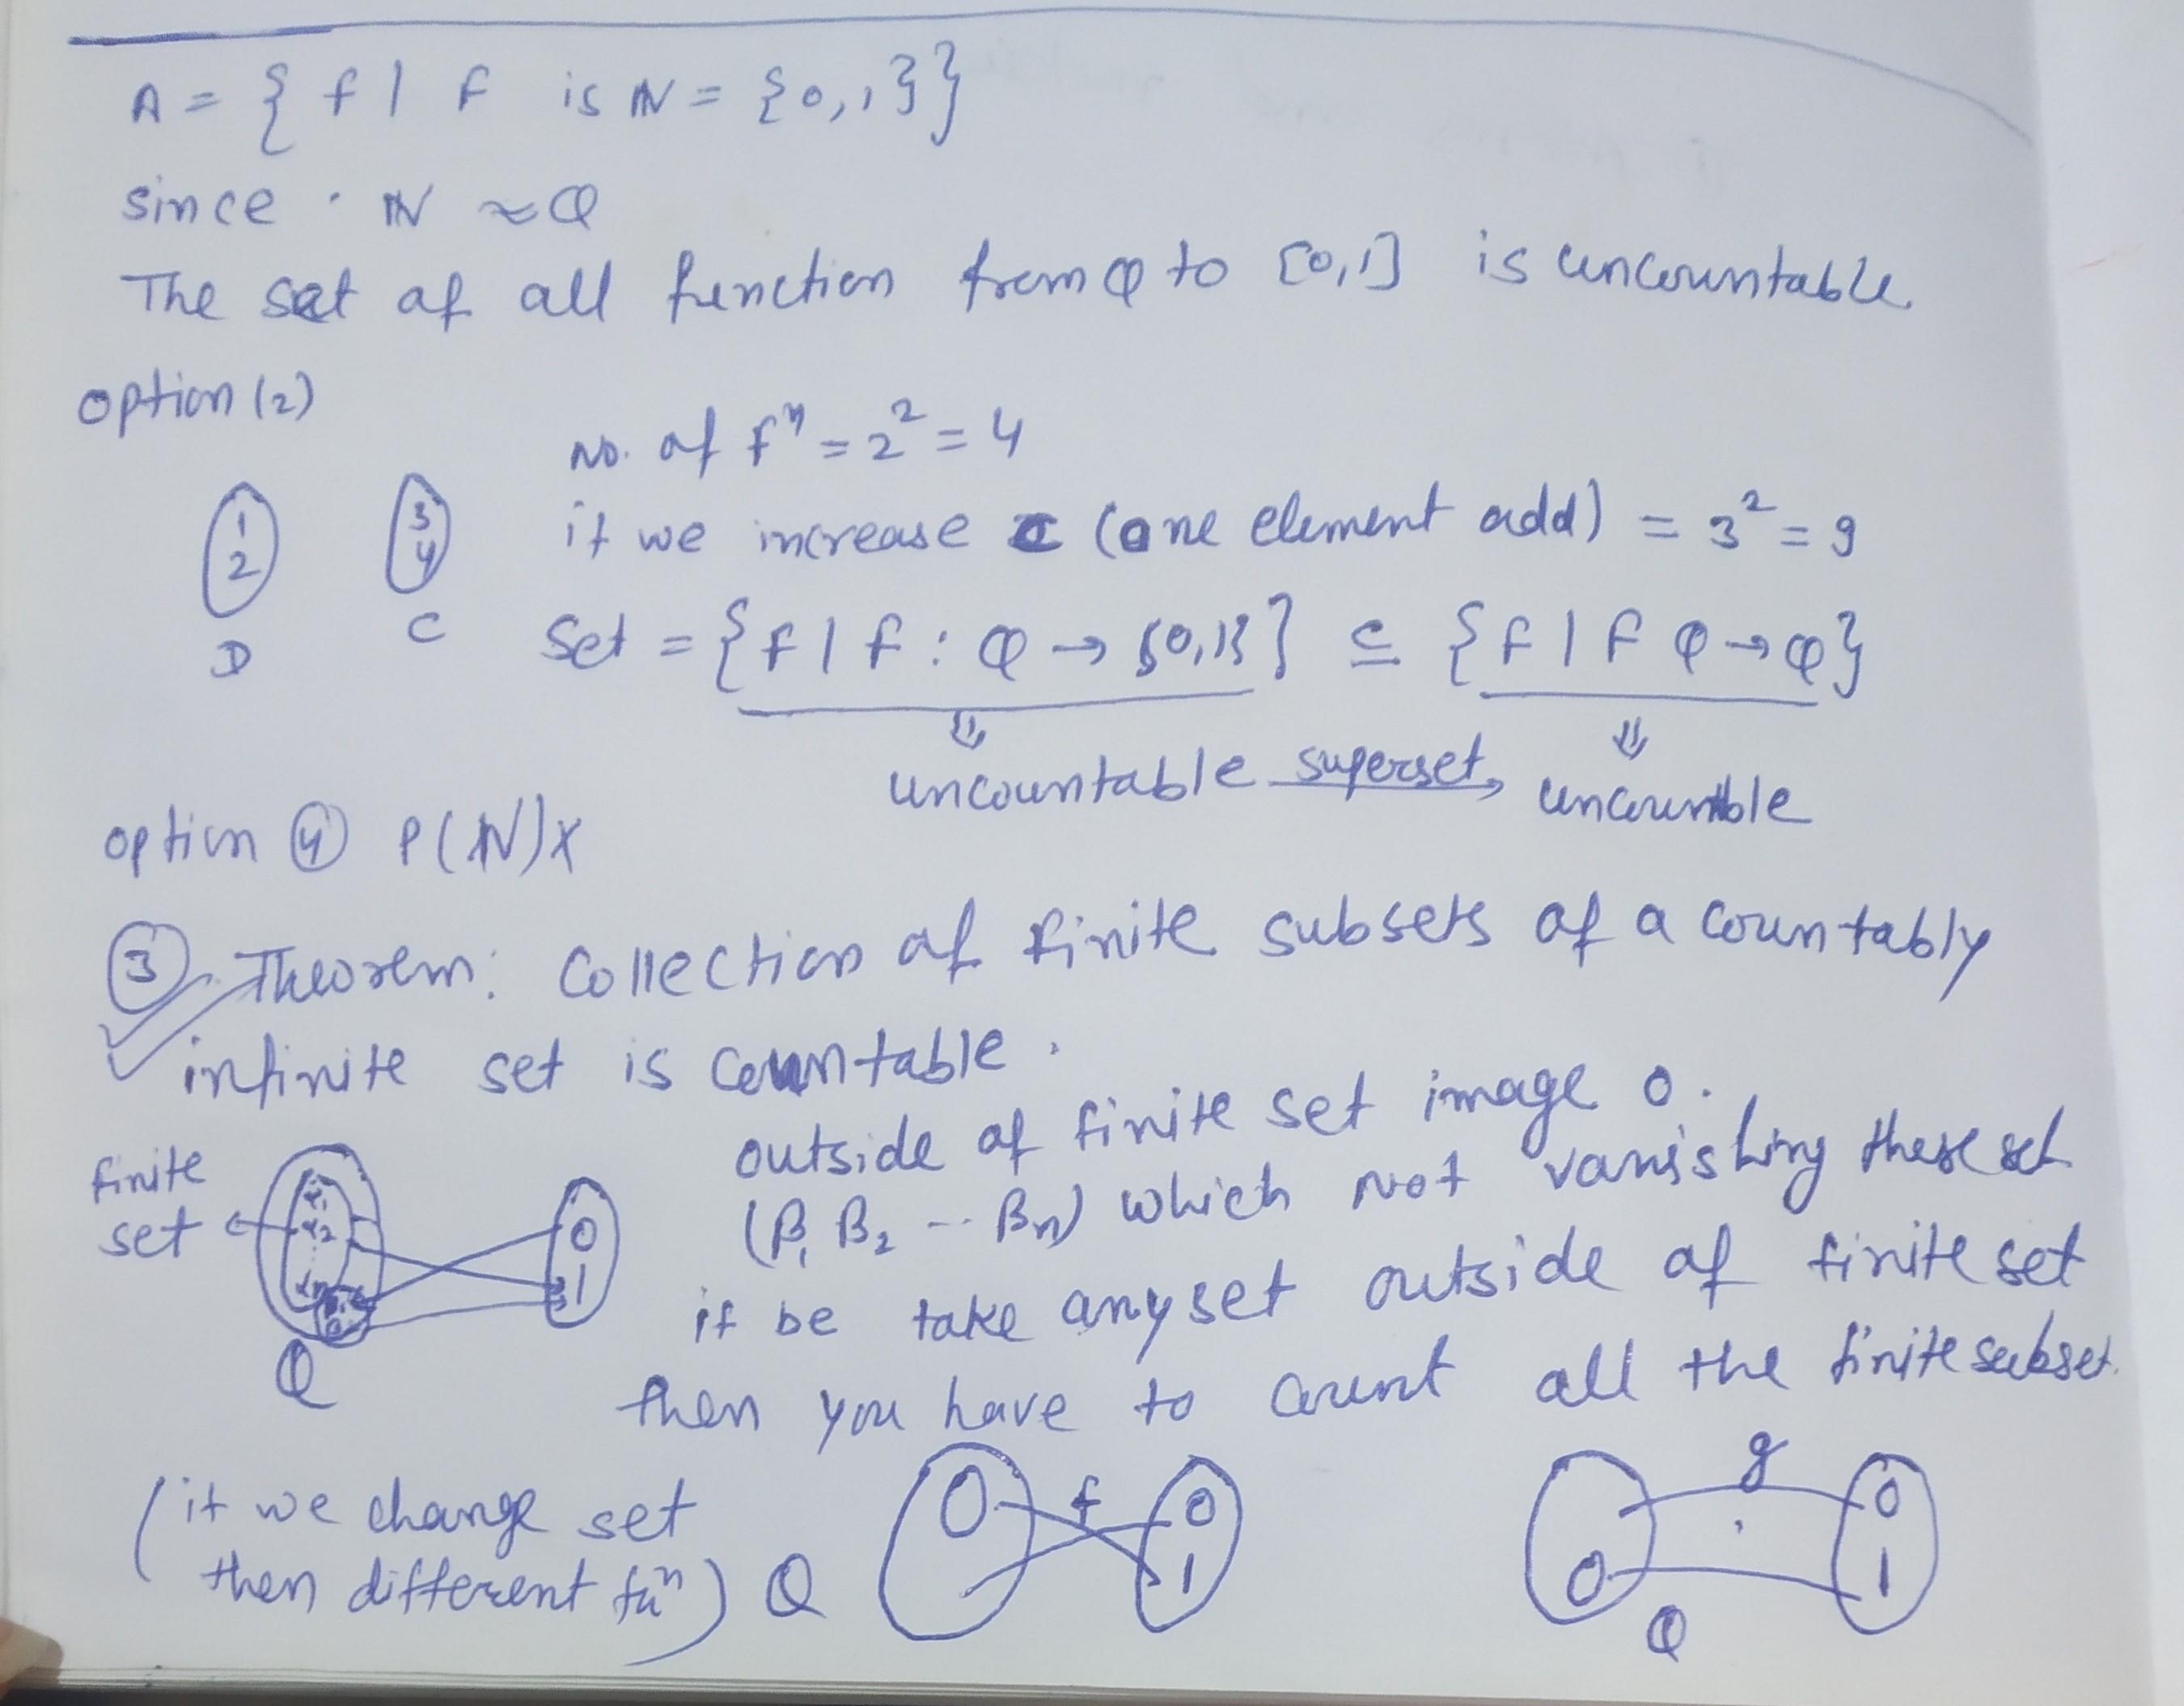 A = { f | f is N = {0,1}}
since · N ≈ Q
The set of all function from Q to [0,1] is uncountable
option (2)
No. of fⁿ = 2² = 4
if we increase C (one element add) = 3² = 9
1
2
D
3
4
C
Set = { f | f : Q → {0,1} } ⊆ { f | f Q → Q}
⇓ ⇓
uncountable superset, uncountble
option ④ P(N) X
③ Theorem: Collection of finite subsets of a countably
infinite set is countable.
outside of finite set image 0.
(B₁ B₂ --- Bn) which not vanishing these set
if be take any set outside of finite set
then you have to count all the finite subset.
finite
set
0
1
Q
(if we change set
then different fuⁿ)
Q
f
0
1
g
0
1
Q